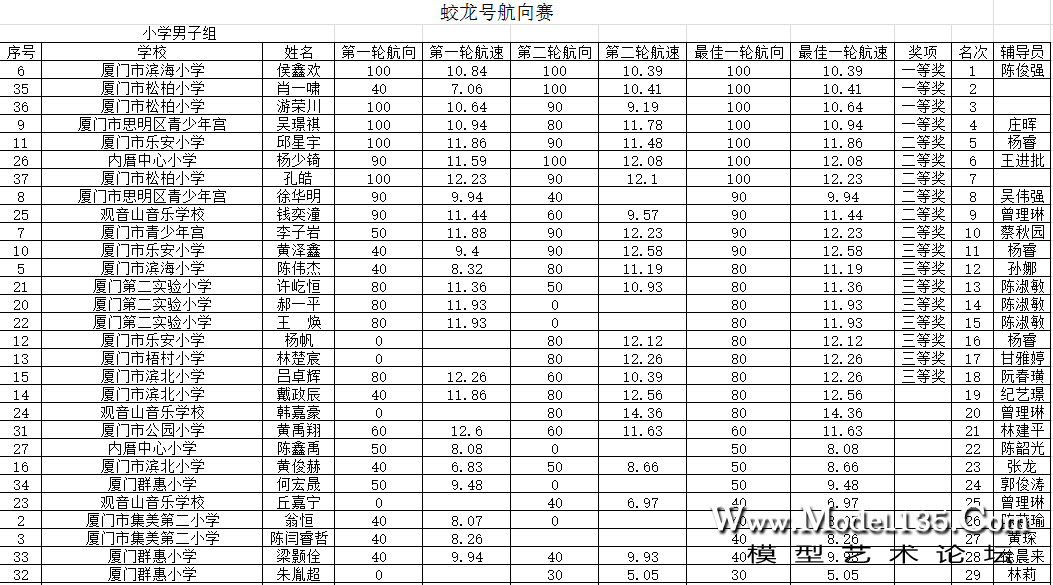 蛟龙号航向赛
小学男子组
序号 学校 姓名 第一轮航向 第一轮航速 第二轮航向 第二轮航速 最佳一轮航向 最佳一轮航速 奖项 名次 辅导员
6 厦门市滨海小学 侯鑫欢 100 10.84 100 10.39 100 10.39 一等奖 1 陈俊强
35 厦门市松柏小学 肖一啸 40 7.06 100 10.41 100 10.41 一等奖 2
36 厦门市松柏小学 游荣川 100 10.64 90 9.19 100 10.64 一等奖 3
9 厦门市思明区青少年宫 吴璟祺 100 10.94 80 11.78 100 10.94 一等奖 4 庄晖
11 厦门市乐安小学 邱星宇 100 11.86 90 11.48 100 11.86 二等奖 5 杨睿
26 内厝中心小学 杨少锜 90 11.59 100 12.08 100 12.08 二等奖 6 王进批
37 厦门市松柏小学 孔皓 100 12.23 90 12.1 100 12.23 二等奖 7
8 厦门市思明区青少年宫 徐华明 90 9.94 40 90 9.94 二等奖 8 吴伟强
25 观音山音乐学校 钱奕潼 90 11.44 60 9.57 90 11.44 二等奖 9 曾理琳
7 厦门市青少年宫 李子岩 50 11.88 90 12.23 90 12.23 二等奖 10 蔡秋园
10 厦门市乐安小学 黄泽鑫 40 9.4 90 12.58 90 12.58 三等奖 11 杨睿
5 厦门市滨海小学 陈伟杰 40 8.32 80 11.19 80 11.19 三等奖 12 孙娜
21 厦门第二实验小学 许屹恒 80 11.36 50 10.93 80 11.36 三等奖 13 陈淑敏
20 厦门第二实验小学 郝一平 80 11.93 0 80 11.93 三等奖 14 陈淑敏
22 厦门第二实验小学 王 焕 80 11.93 0 80 11.93 三等奖 15 陈淑敏
12 厦门市乐安小学 杨帆 0 80 12.12 80 12.12 三等奖 16 杨睿
13 厦门市梧村小学 林楚宸 0 80 12.26 80 12.26 三等奖 17 甘雅婷
15 厦门市滨北小学 吕卓辉 80 12.26 60 10.39 80 12.26 三等奖 18 阮春璜
14 厦门市滨北小学 戴政辰 40 11.86 80 12.56 80 12.56 19 纪艺璟
24 观音山音乐学校 韩嘉豪 0 80 14.36 80 14.36 20 曾理琳
31 厦门市公园小学 黄禹翔 60 12.6 60 11.63 60 11.63 21 林建平
27 内厝中心小学 陈鑫禹 50 8.08 0 50 8.08 22 陈韶光
16 厦门市滨北小学 黄俊赫 40 6.83 50 8.66 50 8.66 23 张龙
34 厦门群惠小学 何宏晟 50 9.48 0 50 9.48 24 郭俊涛
23 观音山音乐学校 丘嘉宁 0 40 6.97 40 6.97 25 曾理琳
2 厦门市集美第二小学 翁恒 40 8.07 0 40 26
3 厦门市集美第二小学 陈闫睿哲 40 8.26 40 8.26 27 黄琛
33 厦门群惠小学 梁颢佺 40 9.94 40 9.93 40 28
32 厦门群惠小学 朱胤超 0 30 5.05 30 5.05 29 林莉
Www.Model135.Com
模型艺术论坛